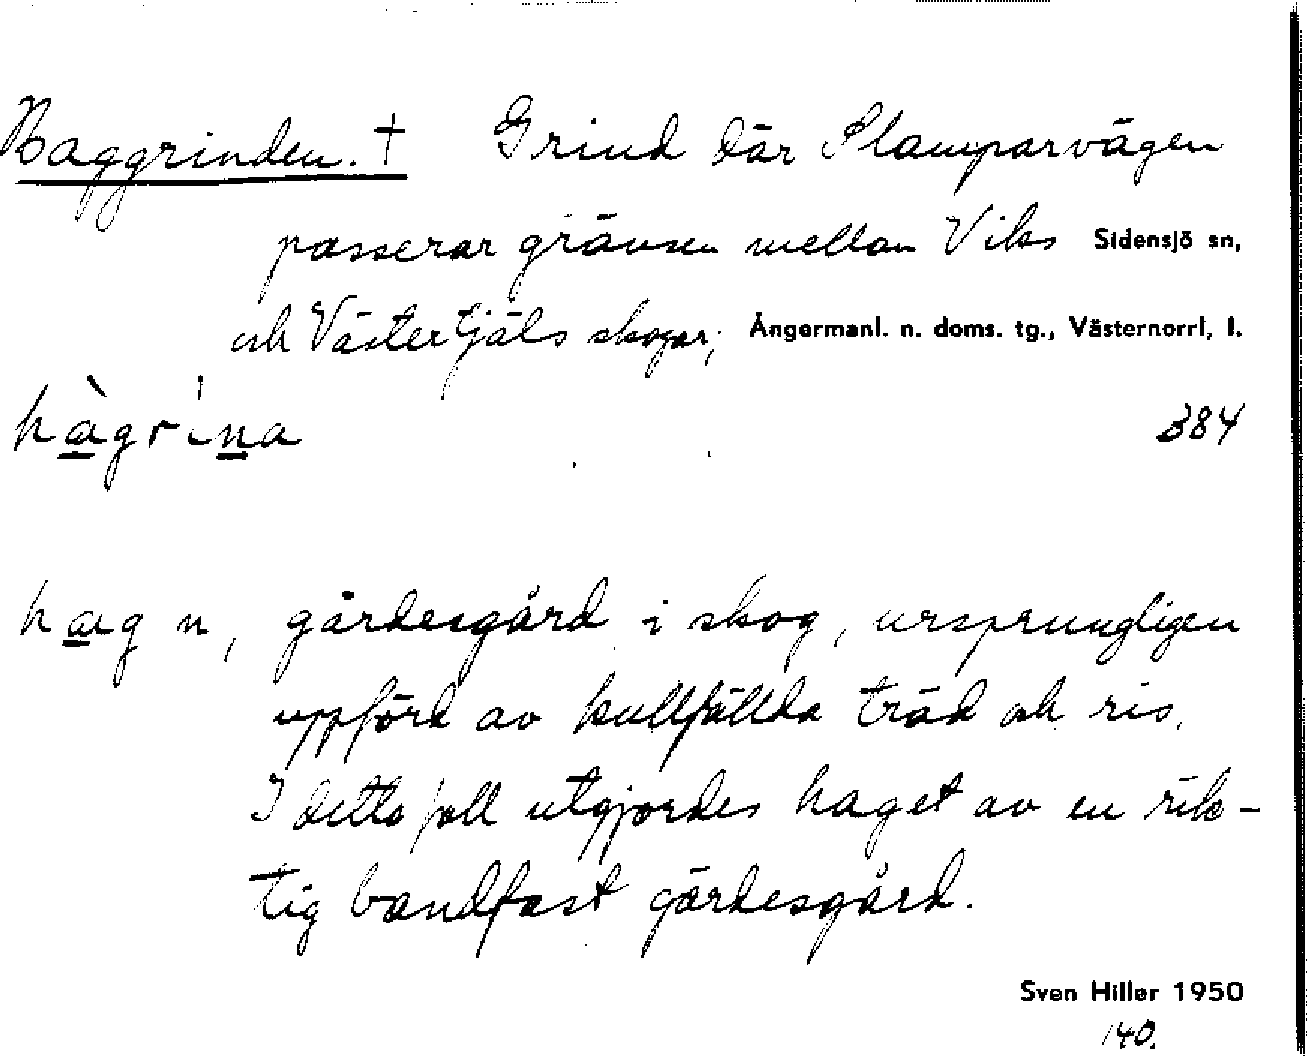 Haggrinden. † Grind där Stamparvägen
passerar gränsen mellan Viks Sidensjö sn,
och Västertjäls skogar; Ångermanl. n. doms. tg., Västernorrl, l.
hàgrina 384
hag n, gärdesgård i skog, ursprungligen
uppförd av kullfällda träd och ris.
I detta fall utgjordes haget av en rik-
tig bandfast gärdesgård.
Sven Hiller 1950
140.